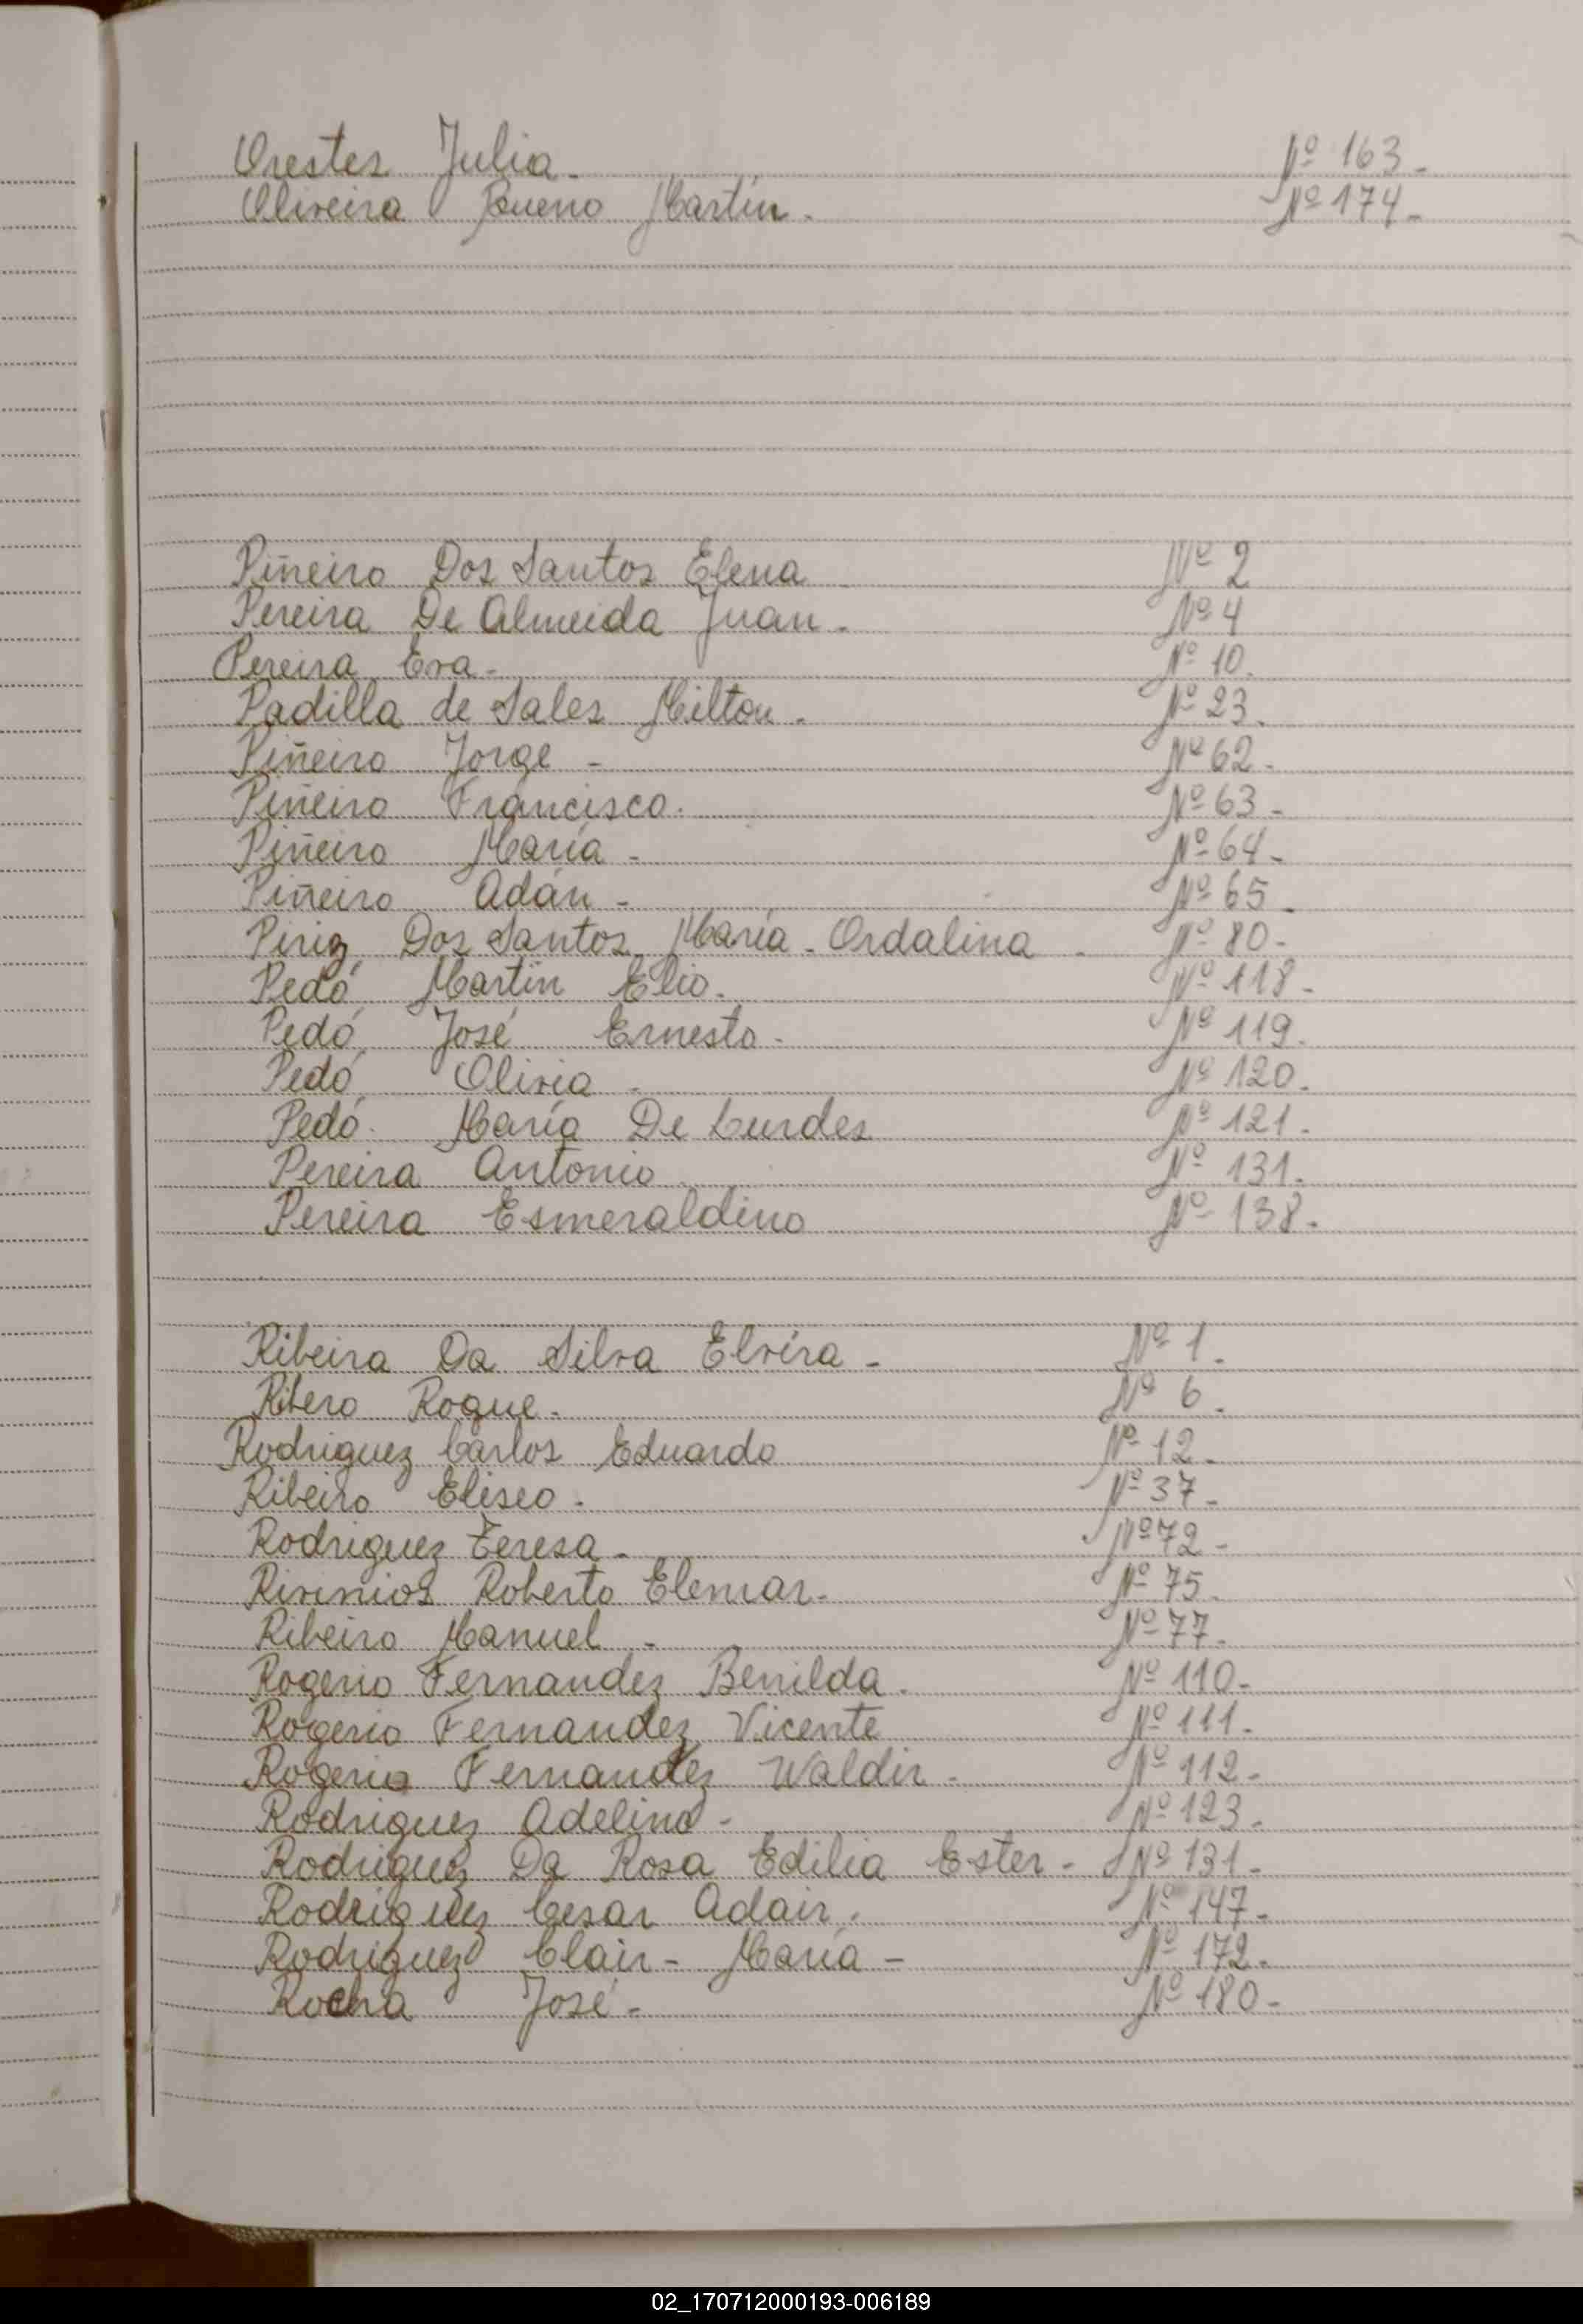 Orestes Julia. Nº 163.
Oliveira Bueno Martín. Nº 174.
Piñeiro Dos Santos Elena Nº 2
Pereira De Almeida Juan. Nº 4
Pereira Eva. Nº 10.
Padilla de Sales Milton. Nº 23.
Piñeiro Jorge - Nº 62.
Piñeiro Francisco. Nº 63.
Piñeiro María - Nº 64.
Piñeiro Adán - Nº 65.
Piriz Dos Santos María - Ordalina - Nº 80.
Pedó Martín Elio. Nº 118.
Pedó José Ernesto. Nº 119.
Pedó Olivia - Nº 120.
Pedó María De Lurdes Nº 121.
Pereira Antonio Nº 131.
Pereira Esmeraldino Nº 138.
Ribeira Da Silva Elvira - Nº 1.
Ribero Roque. Nº 6.
Rodriguez Carlos Eduardo Nº 12.
Ribeiro Eliseo. Nº 37.
Rodriguez Teresa - Nº 72.
Roberto Elemar. Nº 75.
Ribeiro Manuel - Nº 77.
Rogerio Fernandez Benilda. Nº 110.
Rogerio Fernandez Vicente Nº 111.
Rogerio Fernandez Waldir - Nº 112.
Rodriguez Adelino - Nº 123.
Rodriguez Da Rosa Edilia Ester - Nº 131.
Rodriguez Cesar Adair. Nº 147.
Rodriguez Clair - María - Nº 172.
Rocha José - Nº 180.
02_170712000193-006189